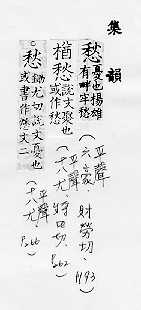 集韻
愁憂也揚雄有畔牢愁
（平聲六豪．財勞切．P193）
楢愁說文聚也或作愁
（平聲十八尤．將由切．P262）
愁鋤尤切說文憂也或書作愀文二
（平聲十八尤．P266）